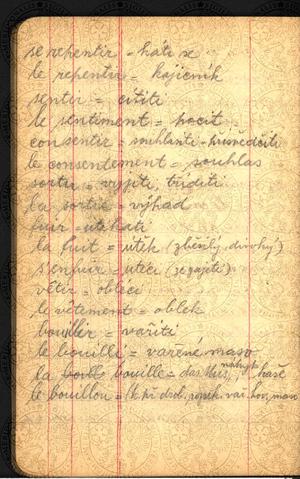 se repentir = káti se
le repentir = kajicník
sentir = cititi
le sentiment = pocit
consentir = souhlasiti - přisvědčiti
le consentement = souhlas
sortir = vyjíti, tříditi
la sortie = východ
fuir = utíkati
la fuit = útěk (zběsilý, divoký)
s'enfuir = utéci (se zajetí)
vêtir = obléci
le vêtement = oblek
bouillir = vařiti
le bouilli = vařené maso
la bouille = das kaše
le bouillon = hov. maso